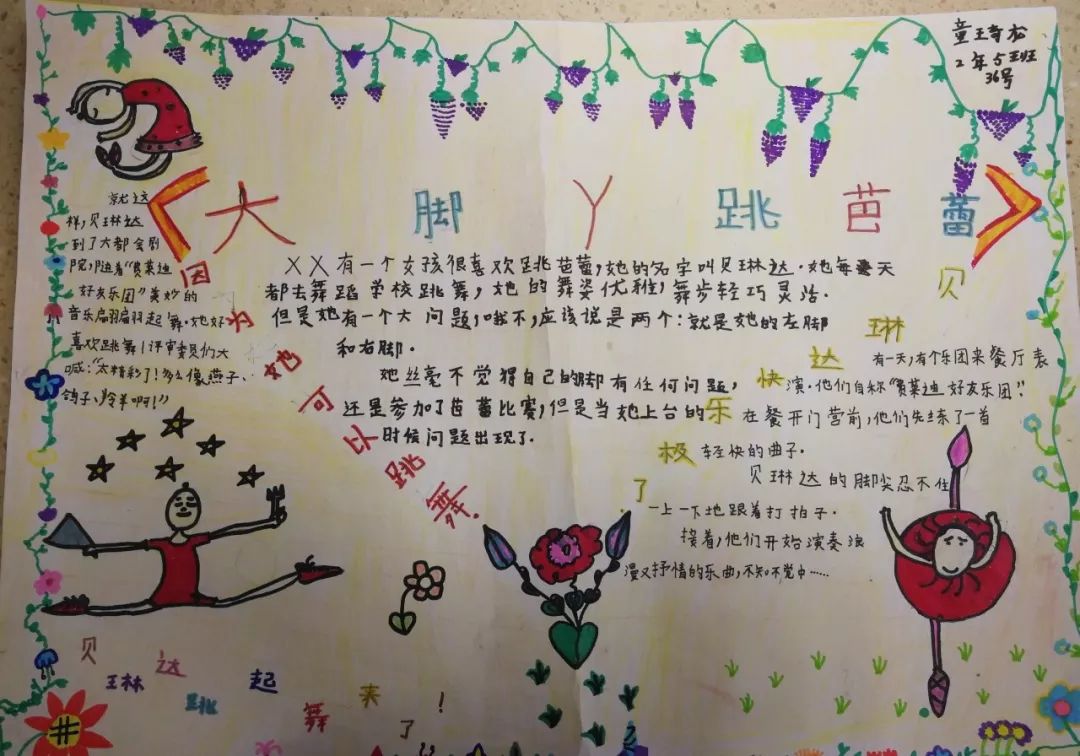 2年5班
36号
《大脚丫跳芭蕾》
XX有一个女孩很喜欢跳芭蕾,她的名字叫贝琳达.她每天
都去舞蹈学校跳舞,她的舞姿优雅,舞步轻巧灵活.
但是她有一个大问题,哦不,应该说是两个:就是她的左脚
和右脚.
她丝毫不觉得自己的脚有任何问题,
还是参加了芭蕾比赛,但是当她上台的
时候问题出现了.
因为她可以跳舞.
贝琳达快乐极了
有一天,有个乐团来餐厅表
演.他们自称“费莱迪好友乐团”.
在餐开门营前,他们先练了一首
轻快的曲子.
贝琳达的脚尖忍不住
一上一下地跟着打拍子.
接着,他们开始演奏浪
漫又抒情的乐曲,不知不觉中……
就这
样,贝琳达
到了大都会剧
院,随着“费莱迪
好友乐团”美妙的
音乐翩翩起舞.她好
喜欢跳舞!评审委员们大
喊:“太精彩了!多么像燕子、
鸽子、羚羊啊!”
贝琳达跳起舞来了!